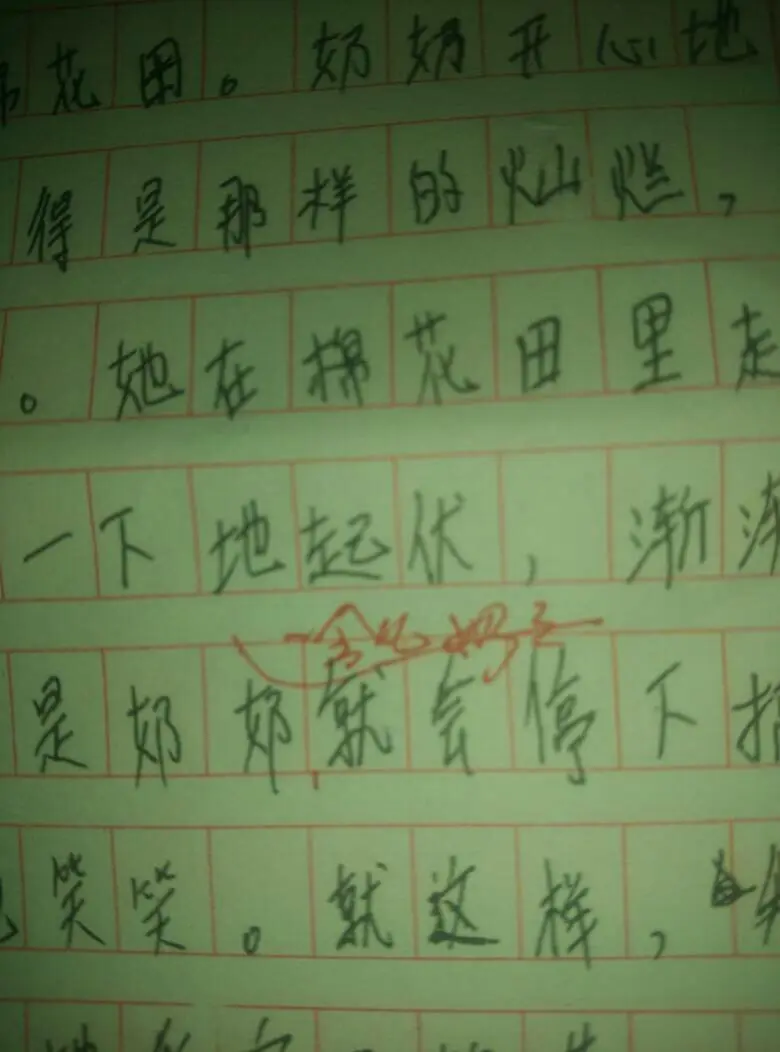 花田。奶奶开心地
得是那样的灿烂，
。她在棉花田里走
一下地起伏，渐渐
是奶奶就会停下
笑笑。就这样，